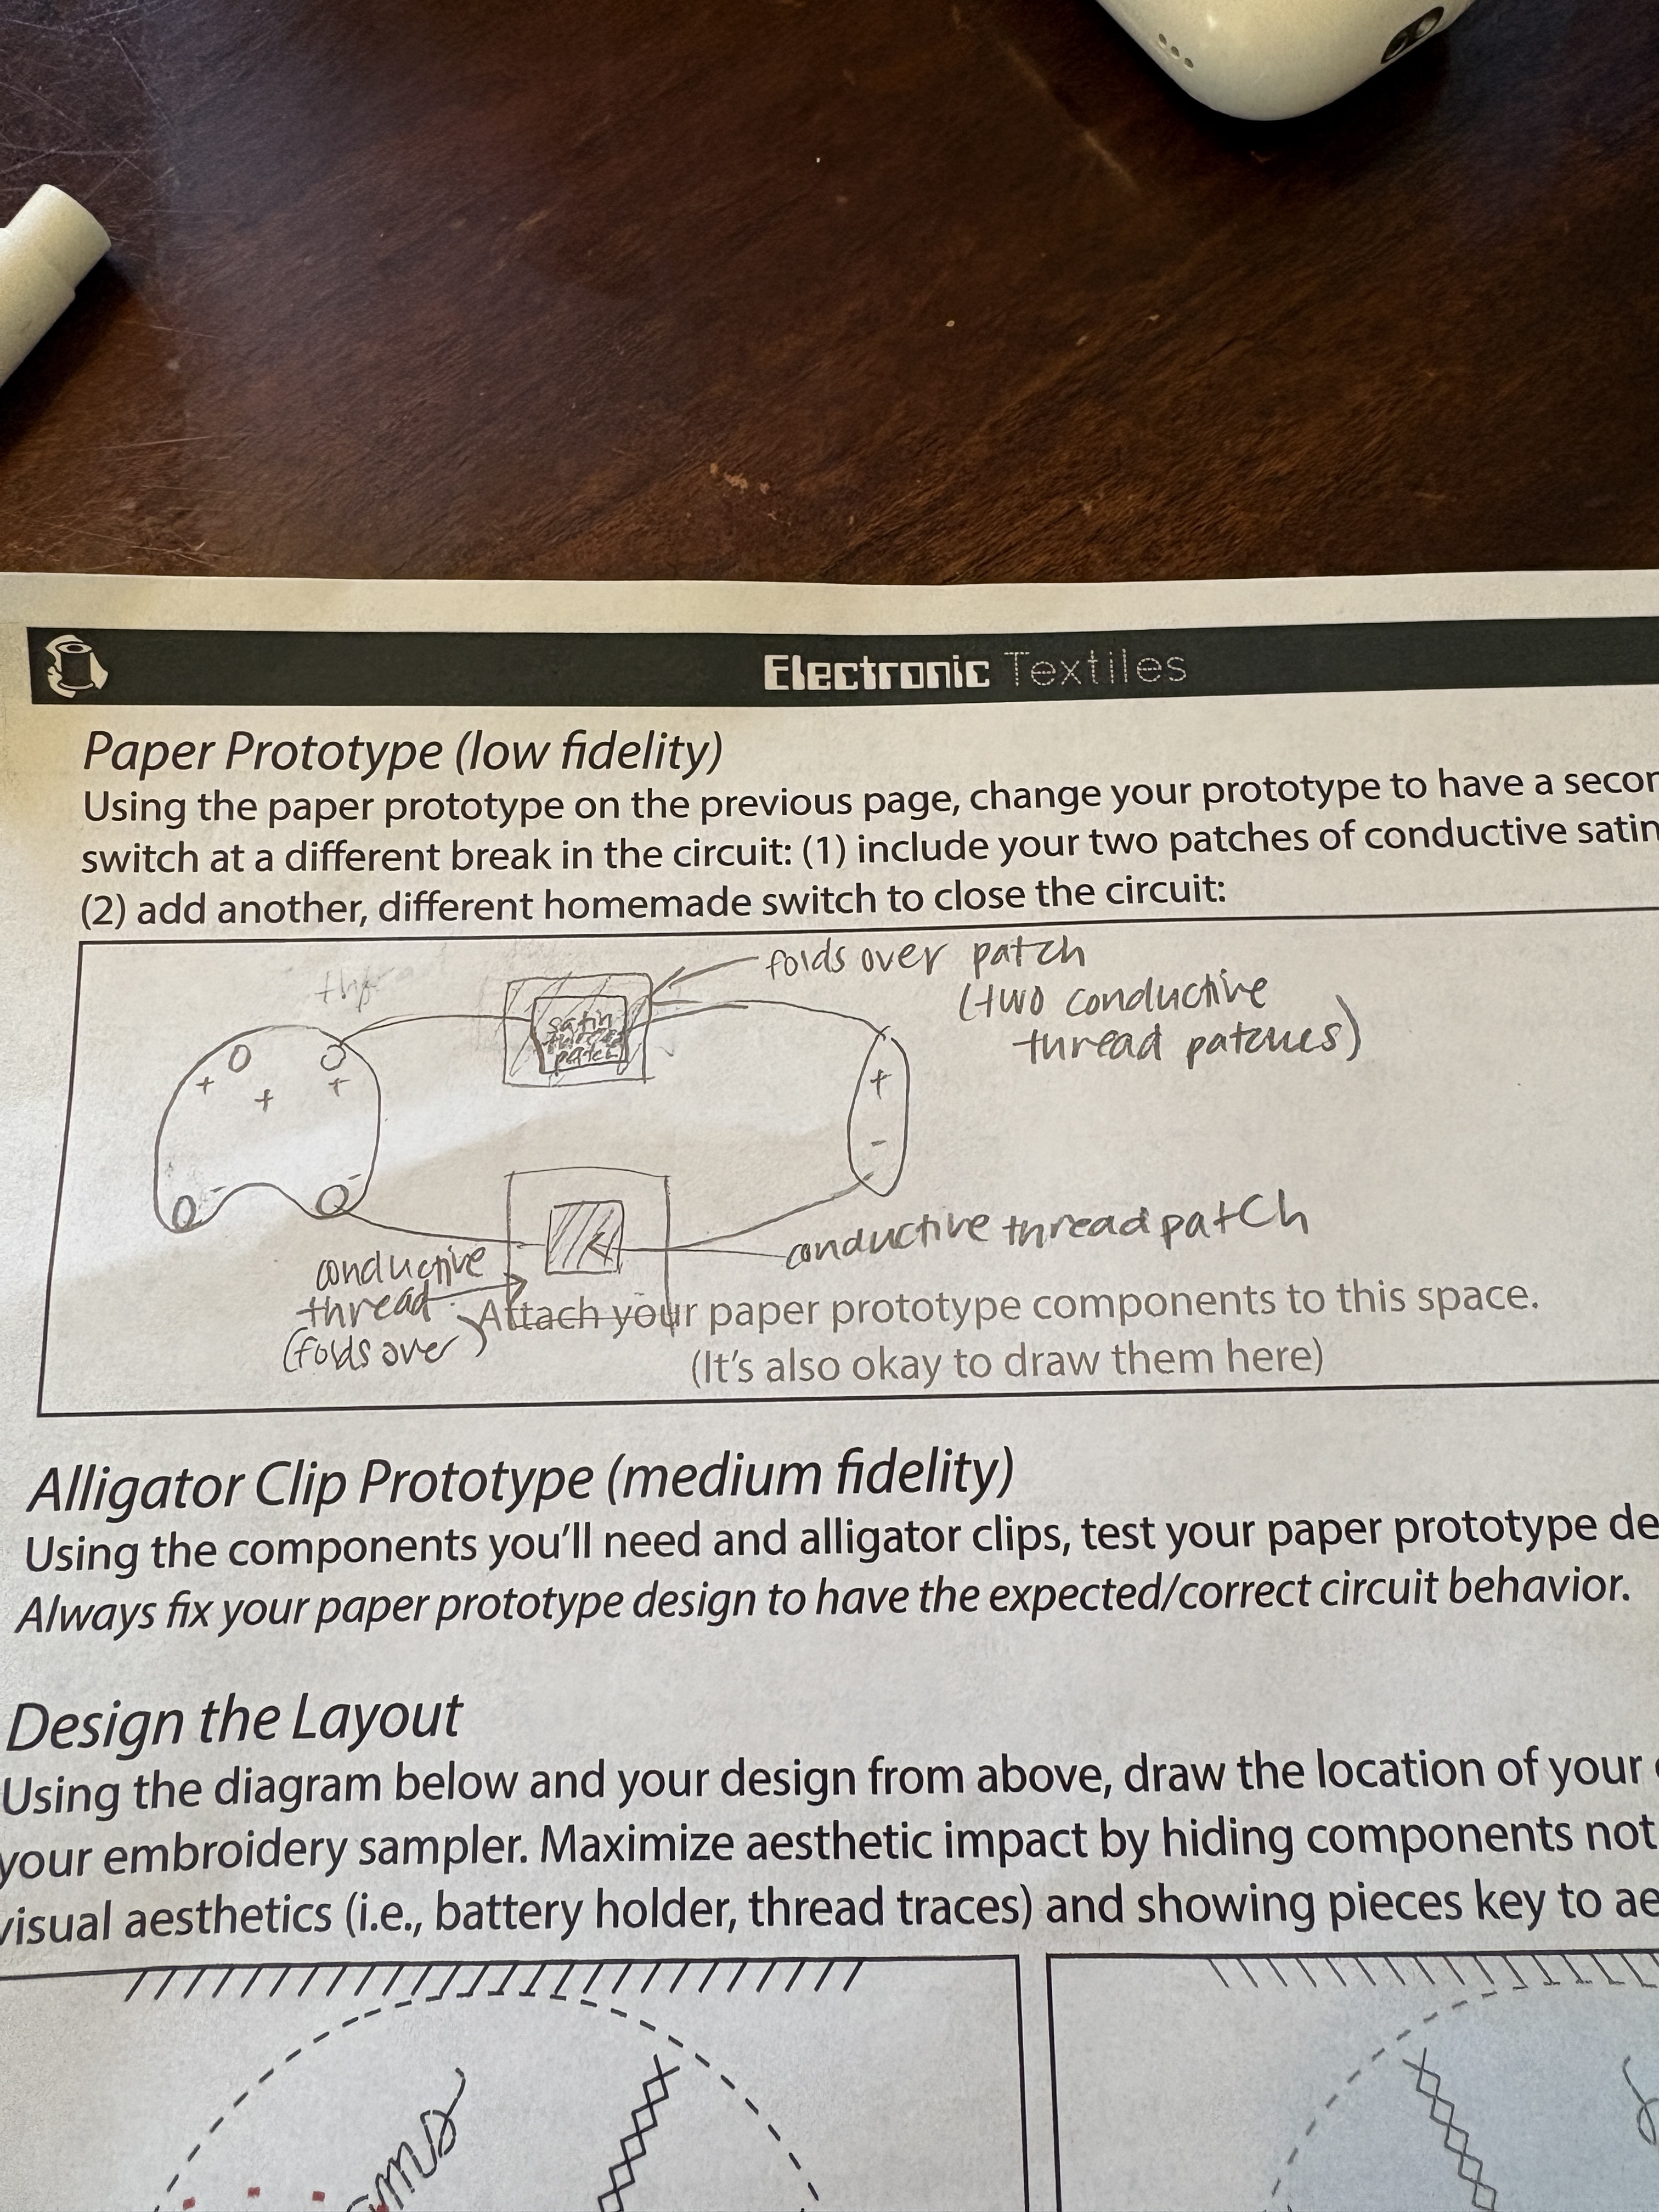 Electronic Textiles
Paper Prototype (low fidelity)
Using the paper prototype on the previous page, change your prototype to have a secon
switch at a different break in the circuit: (1) include your two patches of conductive satin
(2) add another, different homemade switch to close the circuit:
folds over patch
(two conductive
thread patches)
satin
patch
+ + +
+
-
- -
conductive thread patch
conductive
thread
(folds over)
Attach your paper prototype components to this space.
(It's also okay to draw them here)
Alligator Clip Prototype (medium fidelity)
Using the components you'll need and alligator clips, test your paper prototype de
Always fix your paper prototype design to have the expected/correct circuit behavior.
Design the Layout
Using the diagram below and your design from above, draw the location of your
your embroidery sampler. Maximize aesthetic impact by hiding components not
visual aesthetics (i.e., battery holder, thread traces) and showing pieces key to ae